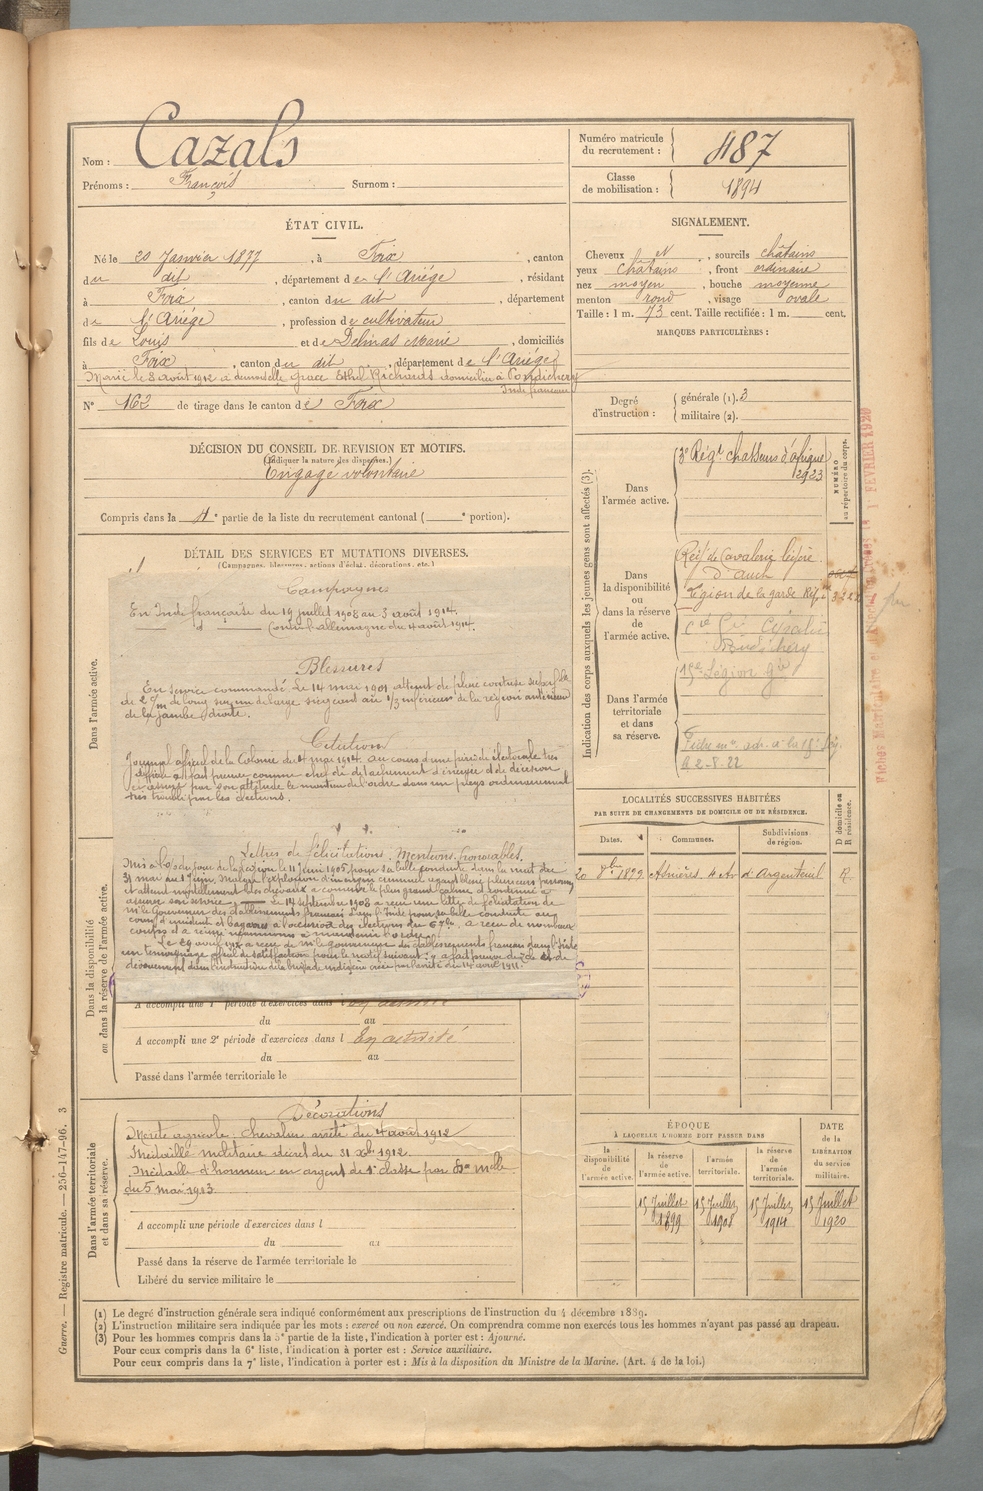 Nom : Cazals
Prénoms : François Surnom :
Numéro matricule du recrutement : 487
Classe de mobilisation : 1894
ÉTAT CIVIL.
Né le 20 Janvier 1877, à Foix, canton
du dit, département de l'Ariège, résidant
à Foix, canton du dit, département
de l'Ariège, profession de cultivateur
fils de Louis et de Delmas Marie, domiciliés
à Foix, canton du dit, département de l'Ariège
Marié le 3 août 1912 à demoiselle Grace Ethel Richards domiciliée à Pondichery
Inde française
N° 162 de tirage dans le canton de Foix
SIGNALEMENT.
Cheveux N, sourcils châtains
yeux châtains, front ordinaire
nez moyen, bouche moyenne
menton rond, visage ovale
Taille : 1 m. 73 cent. Taille rectifiée : 1 m. cent.
MARQUES PARTICULIÈRES :
Degré d'instruction : générale (1). 3
militaire (2).
DÉCISION DU CONSEIL DE REVISION ET MOTIFS.
(Indiquer la nature des dispenses.)
Engagé volontaire
Compris dans la 4e partie de la liste du recrutement cantonal ( e portion).
DÉTAIL DES SERVICES ET MUTATIONS DIVERSES.
(Campagnes, blessures, actions d'éclat, décorations, etc.)
Dans l'armée active.
Campagnes
En Inde française du 19 juillet 1908 au 3 août 1914.
d° contre l'allemagne du 4 août 1914.
Blessures
En service commandé. Le 14 mai 1901 atteint de plaie contuse
de long de large siégeant au 1/3 inférieur de la région antérieure
de la jambe droite.
Citation
Journal officiel de la Colonie du mai 1914. au cours d'une période électorale très
difficile a fait preuve comme chef de détachement d'énergie et de décision
et assuré par son attitude le maintien de l'ordre dans un pays ordinairement
très troublé par les élections.
Lettres de félicitations. Mentions honorables.
Mis à l'ordre du jour de la Légion le 11 juin 1905 pour sa belle conduite dans la nuit du
31 mai au 1er juin, malgré l'explosion d'un engin criminel ayant blessé plusieurs personnes
et atteint mortellement des chevaux a conservé le plus grand calme et continué à
assurer son service. Le 14 septembre 1908 a reçu une lettre de félicitation de
Mr le Gouverneur des établissements français dans l'Inde pour sa belle conduite au
cours d'incident et bagarres à l'occasion des élections du a reçu de nombreux
coups et a réussi néanmoins à maintenir l'ordre.
Le 29 avril a reçu de Mr le gouverneur des établissements français dans l'Inde
un témoignage officiel de satisfaction pour le motif suivant : a fait preuve de zèle et de
dévouement dans l'instruction de la brigade indigène créée par arrêté du 14 avril 1911.
Dans la disponibilité ou dans la réserve de l'armée active.
A accompli une 1e période d'exercices dans
du au
A accompli une 2e période d'exercices dans l En activité
du au
Passé dans l'armée territoriale le
Dans l'armée territoriale et dans sa réserve.
Décorations
Mérite agricole : Chevalier arrêté du 4 août 1912
Médaillé militaire décret du 31 Xbre 1912.
Médaille d'honneur en argent de 1e classe par
du 5 mai 1913.
A accompli une période d'exercices dans l
du au
Passé dans la réserve de l'armée territoriale le
Libéré du service militaire le
Indication des corps auxquels les jeunes gens sont affectés (3).
NUMÉRO au répertoire du corps.
Dans l'armée active.
3e Régt chasseurs d'afrique
2923
Dans la disponibilité ou dans la réserve de l'armée active.
Régt de Cavalerie légère
d'auch
Légion de la garde Rép.ne 3222
Cie Cipahis
Pondichéry
Dans l'armée territoriale et dans sa réserve.
Légion
Fiche adr. à la
2-8-22
Fiches Matriculaires FÉVRIER 1920
LOCALITÉS SUCCESSIVES HABITÉES
PAR SUITE DE CHANGEMENTS DE DOMICILE OU DE RÉSIDENCE.
D domicile ou R résidence.
Dates. Communes. Subdivisions de région.
20 1899 Asnières d'Argenteuil R.
ÉPOQUE
À LAQUELLE L'HOMME DOIT PASSER DANS
DATE de la LIBÉRATION du service militaire.
la disponibilité de l'armée active. la réserve de l'armée active. l'armée territoriale. la réserve de l'armée territoriale.
15 Juillet 1899 15 Juillet 1908 15 Juillet 1914 15 Juillet 1920
(1) Le degré d'instruction générale sera indiqué conformément aux prescriptions de l'instruction du 4 décembre 1889.
(2) L'instruction militaire sera indiquée par les mots : exercé ou non exercé. On comprendra comme non exercés tous les hommes n'ayant pas passé au drapeau.
(3) Pour les hommes compris dans la 5e partie de la liste, l'indication à porter est : Ajourné.
Pour ceux compris dans la 6e liste, l'indication à porter est : Service auxiliaire.
Pour ceux compris dans la 7e liste, l'indication à porter est : Mis à la disposition du Ministre de la Marine. (Art. 4 de la loi.)
Guerre. — Registre matricule. — 256-147-96. 3